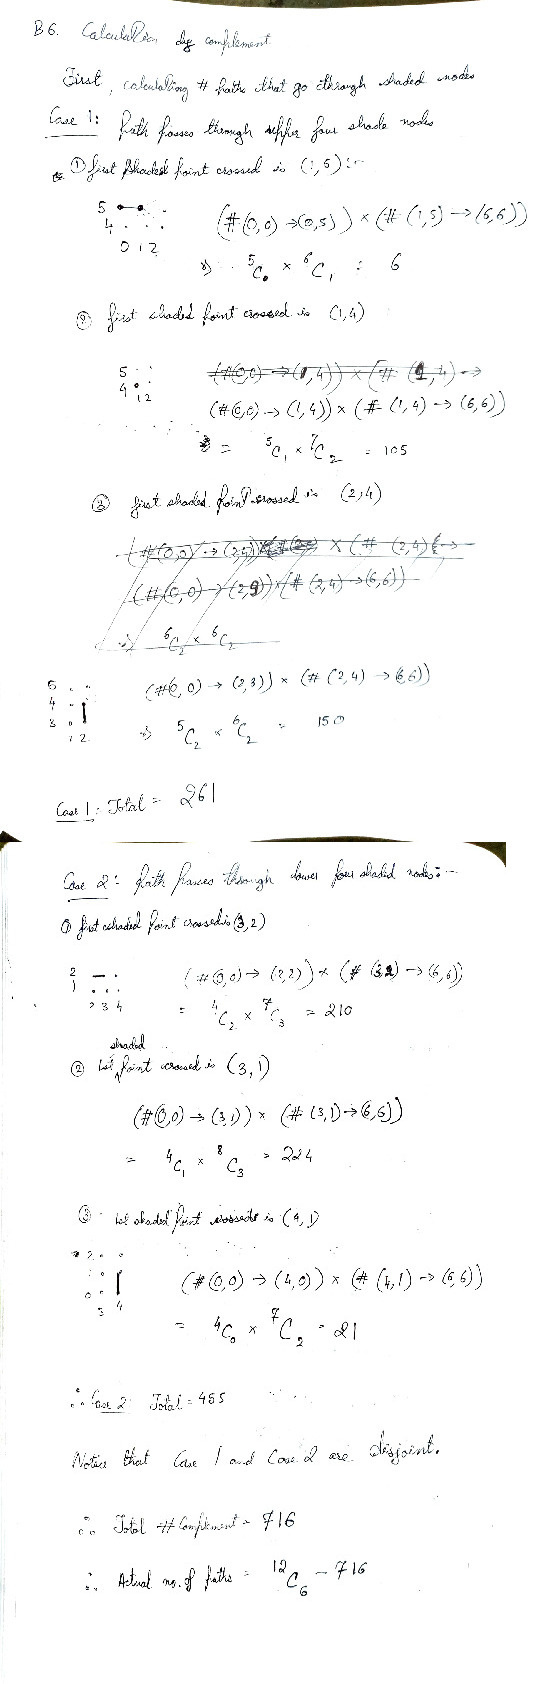 B6. Calculation by complement.
First, calculating # paths that go through shaded nodes
Case 1: Path passes through upper four shade nodes
① first shaded point crossed is (1,5) :-
5
4
0 1 2
(#(0,0) → (0,5)) × (# (1,5) → (6,6))
⇒ ⁵C₀ × ⁶C₁ = 6
② first shaded point crossed is (1,4)
5
4
1 2
(#(0,0) → (1,4)) × (# (1,4) →
(#(0,0) → (1,4)) × (# (1,4) → (6,6))
= ⁵C₁ × ⁷C₂ = 105
③ first shaded point crossed is (2,4)
(#(0,0) → (2,4)) × (# (2,4) →
(#(0,0) → (2,3)) × (# (2,4) → (6,6))
⇒ ⁶C₂ × ⁶C₂
5
4
3
1 2
(#(0,0) → (2,3)) × (# (2,4) → (6,6))
⇒ ⁵C₂ × ⁶C₂ = 150
Case 1: Total = 261
Case 2: Path passes through lower four shaded nodes :-
① first shaded point crossed is (3,2)
2
1
2 3 4
(#(0,0) → (2,2)) × (# (3,2) → (6,6))
= ⁴C₂ × ⁷C₃ = 210
② 1st shaded point crossed is (3,1)
(#(0,0) → (3,1)) × (# (3,1) → (6,6))
= ⁴C₁ × ⁸C₃ = 224
③ 1st shaded point crossed is (4,1)
2
1
0
3 4
(#(0,0) → (4,0)) × (# (4,1) → (6,6))
= ⁴C₀ × ⁷C₂ = 21
∴ Case 2: Total = 455
Notice that Case 1 and Case 2 are disjoint.
∴ Total # Complement = 716
∴ Actual no. of paths = ¹²C₆ - 716